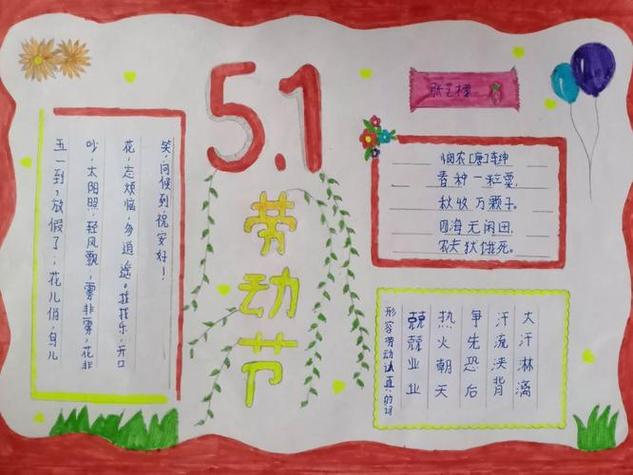 5.1
劳动节
五一到，放假了，花儿俏，鸟儿
吵，太阳照，轻风飘，雾非雾，花非
花，忘烦恼，多逍遥。找乐，开口
笑，问候到祝安好！
悯农[唐]李绅
春种一粒粟，
秋收万颗子。
四海无闲田，
农夫犹饿死。
形容劳动认真的词
兢兢业业
热火朝天
争先恐后
汗流浃背
大汗淋漓